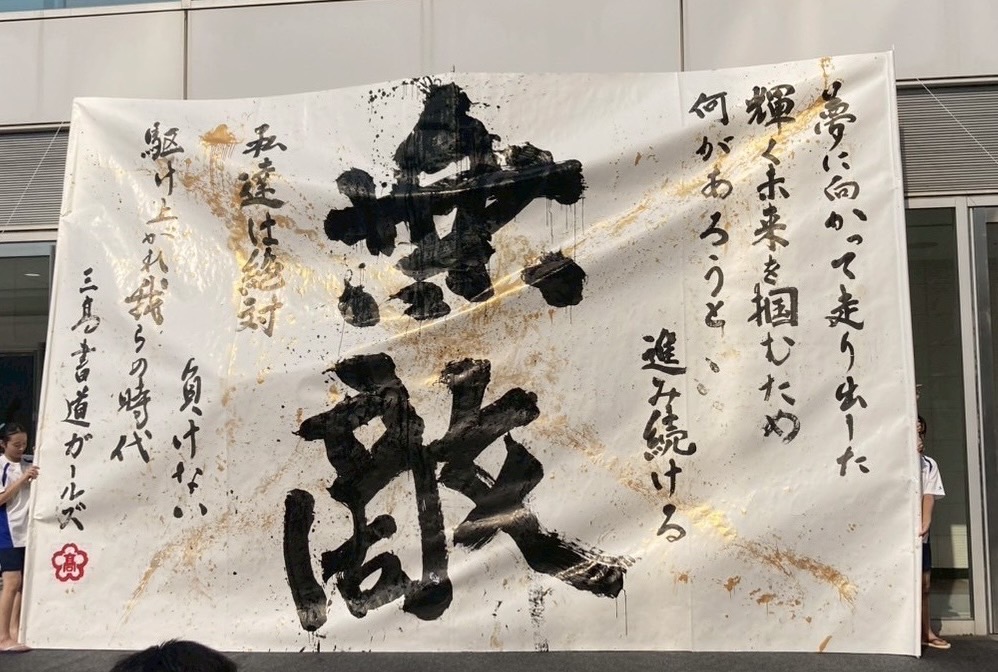 夢に向かって走り出した
輝く未来を掴むため
何があろうと
進み続ける
無敵
私達は絶対
負けない
駆け上がれ我らの時代
三高書道ガールズ
高